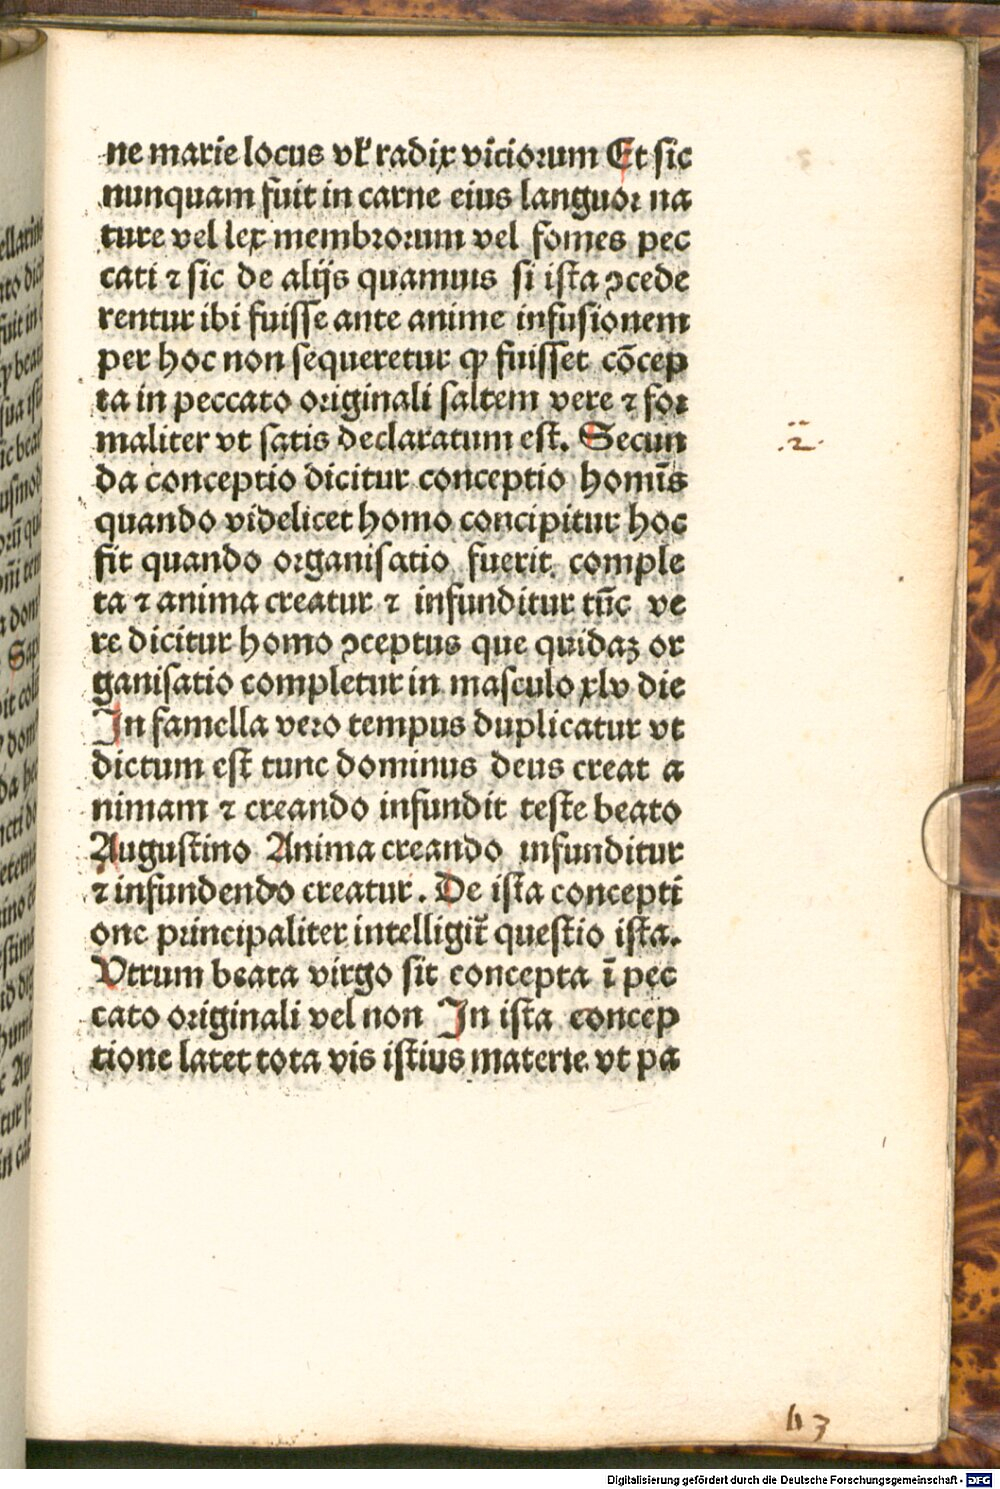 ne marie locus vľ radix viciorum Et sic
nunquam fuit in carne eius languor na
ture vel lex membrorum vel fomes pec
cati ⁊ sic de alijs quamuis si ista ꝯcede
rentur ibi fuisse ante anime infusionem
per hoc non sequeretur ꝙ fuisset cōcep
ta in peccato originali saltem vere ⁊ for
maliter vt satis declaratum est. Secun
da conceptio dicitur conceptio homīs
quando videlicet homo concipitur hoc
fit quando organisatio fuerit comple
ta ⁊ anima creatur ⁊ infunditur tūc ve
re dicitur homo ꝯceptus que quidaꝫ or
ganisatio completur in masculo xlv die
In famella vero tempus duplicatur vt
dictum est tunc dominus deus creat a
nimam ⁊ creando infundit teste beato
Augustino Anima creando infunditur
⁊ infundendo creatur. De ista concepti
one principaliter intelligit̃ questio ista.
Vtrum beata virgo sit concepta ī pec
cato originali vel non In ista concep
tione latet tota vis istius materie vt pa
.2.
b 3
Digitalisierung gefördert durch die Deutsche Forschungsgemeinschaft - DFG